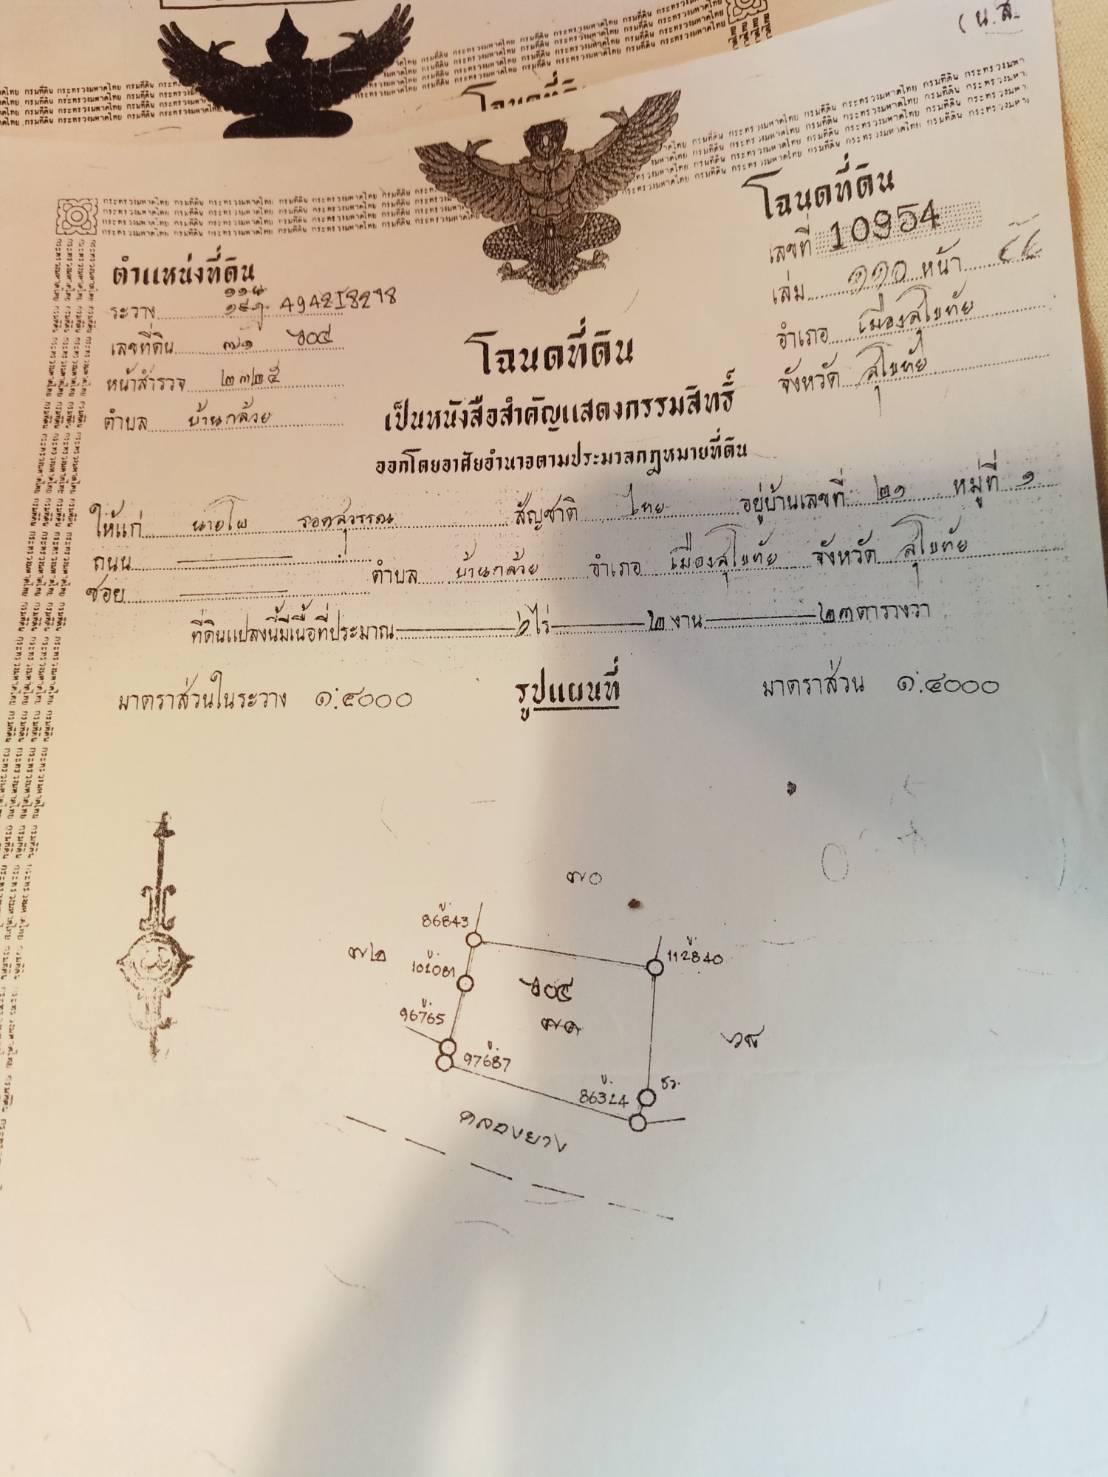 (น.ส.
โฉนดที่ดิน
โฉนดที่ดิน
เลขที่ 10954
เล่ม ๑๑๐ หน้า
อำเภอ เมืองสุโขทัย
จังหวัด สุโขทัย
ตำแหน่งที่ดิน
ระวาง 4942I8298
เลขที่ดิน ๗๑ ๖๐๔
หน้าสำรวจ ๒๓๒๕
ตำบล บ้านกล้วย
โฉนดที่ดิน
เป็นหนังสือสำคัญแสดงกรรมสิทธิ์
ออกโดยอาศัยอำนาจตามประมวลกฎหมายที่ดิน
ให้แก่ นายโผ รอดสุวรรณ สัญชาติ ไทย อยู่บ้านเลขที่ ๒๑ หมู่ที่ ๑
ถนน
ซอย ตำบล บ้านกล้วย อำเภอ เมืองสุโขทัย จังหวัด สุโขทัย
ที่ดินแปลงนี้มีเนื้อที่ประมาณ ๖ ไร่ ๒ งาน ๒๓ ตารางวา
มาตราส่วนในระวาง ๑:๔๐๐๐ รูปแผนที่ มาตราส่วน ๑:๔๐๐๐
๗๐
86ข843
๗๒
112ข840
10ข081
๖๐๔
๗๑
96ข765
๖๙
97ข687
86ข324
คลองยาง
กรมที่ดิน กระทรวงมหาดไทย